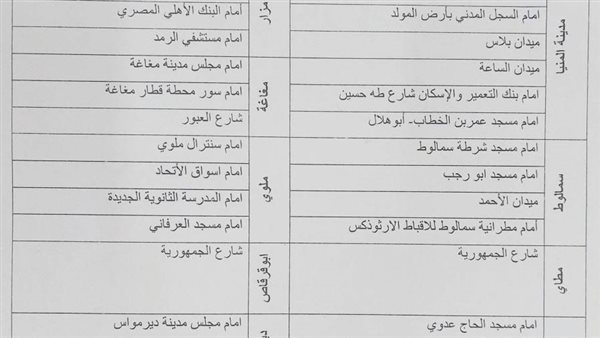 مدينة المنيا
امام السجل المدني بأرض المولد
ميدان بلاس
ميدان الساعة
امام بنك التعمير والإسكان شارع طه حسين
امام مسجد عمربن الخطاب- أبوهلال
سمالوط
امام مسجد شرطة سمالوط
امام مسجد ابو رجب
ميدان الأحمد
امام مطرانية سمالوط للاقباط الارثوذكس
مطاي
شارع الجمهورية
امام مسجد الحاج عدوي
مزار
امام البنك الأهلي المصري
امام مستشفي الرمد
مغاغة
امام مجلس مدينة مغاغة
امام سور محطة قطار مغاغة
شارع العبور
ملوي
امام سنترال ملوي
امام اسواق الأتحاد
امام المدرسة الثانوية الجديدة
امام مسجد العرفاني
ابوقرقاص
شارع الجمهورية
امام مجلس مدينة ديرمواس